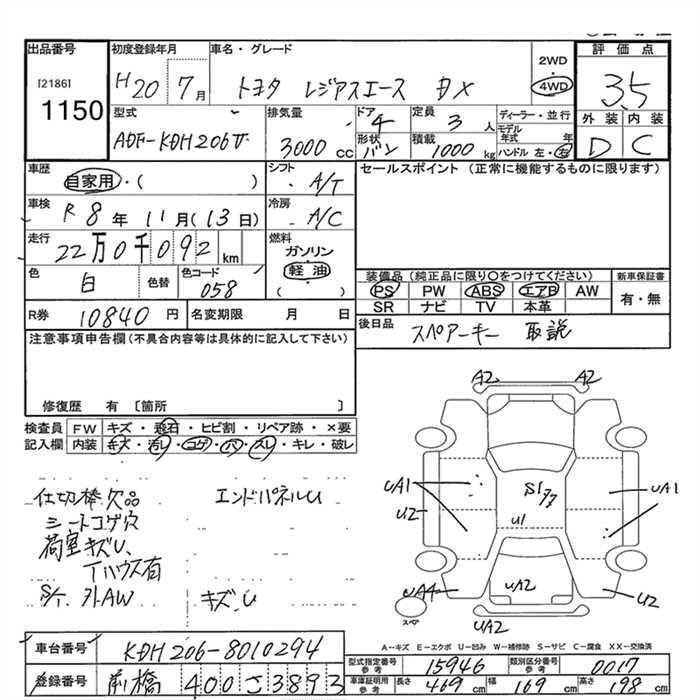 出品番号
[2186]
1150
初度登録年月
H20 7月
車名・グレード
トヨタ レジアスエース DX
2WD
4WD
評価点
3.5
外装 内装
D C
型式
ADF-KDH206V
排気量
3000 cc
ドア
4
定員
3 人
ディーラー・並行
モデル年式 年
形状
バン
積載
1000 kg
ハンドル 左・右
車歴
自家用・( )
シフト
A/T
セールスポイント (正常に機能するものに限ります)
車検
R8年 11月(13日)
冷房
A/C
走行
22万0千092km
燃料
ガソリン
軽油
( )
色
白
色替
色コード
058
装備品(純正品に限り○をつけてください)
新車保証書
PS PW ABS エアB AW
SR ナビ TV 本革
有・無
R券 10840円
名変期限 月 日
後日品 スペアーキー 取説
注意事項申告欄(不具合内容等は具体的に記入して下さい)
修復歴 有 〔箇所 〕
検査員記入欄
FW キズ・飛石・ヒビ割・リペア跡・×要
内装 キズ・汚レ・コゲ・穴・スレ・キレ・破レ
仕切棒欠品 エンドパネルU
シートコゲ穴
荷室キズU、
イハウス有
S/T. 外AW キズ、U
A2 A2
UA1 S1 UA1
U2 U1
UA4 UA2 U2
スペア
UA2
A…キズ E…エクボ U…凹み W…補修跡 S…サビ C…腐食 XX…交換済
車台番号 KDH206-8010294
型式指定番号 参考 15946
類別区分番号 参考 0017
登録番号 前橋 400 さ 3893
車庫証明用 参考 長さ 469cm 幅 169cm 高さ 198cm